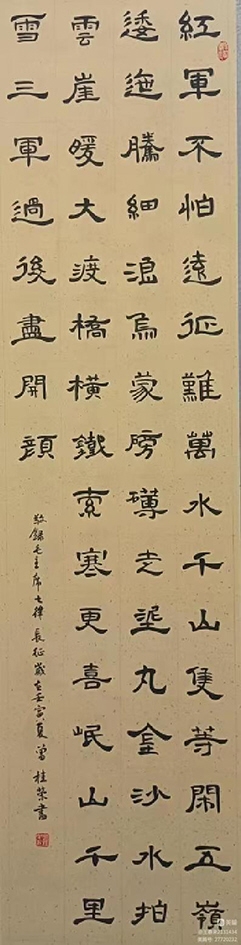 紅軍不怕遠征難萬水千山隻等閑五嶺
逶迤騰細浪烏蒙磅礴走埿丸金沙水拍
雲崖暖大渡橋橫鐵索寒更喜岷山千里
雪三軍過後盡開顏
敬錄毛主席七律長征歲在壬寅夏曾桂榮書